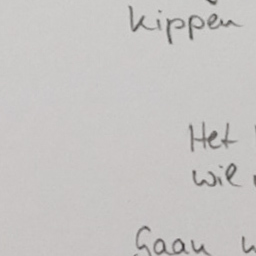 kippen
Het
wil
Gaan